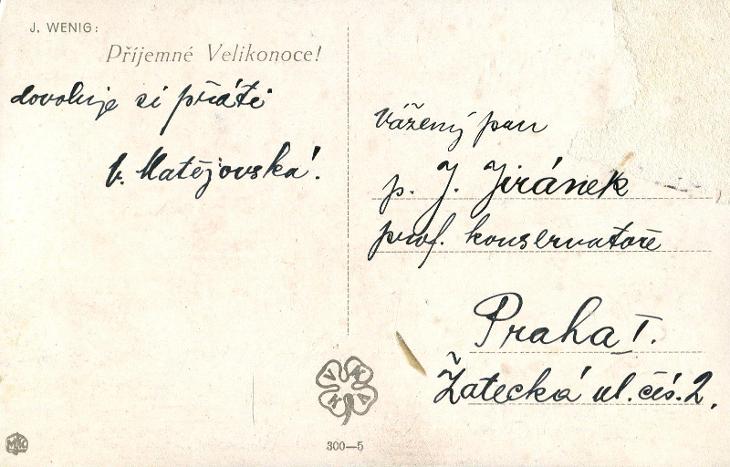 J. WENIG:
Příjemné Velikonoce!
dovoluje si přáti
V. Matějovská!
Vážený pan
p. J. Jiránek
prof. konservatoře
Praha I.
Žatecká ul. čís. 2,
300—5